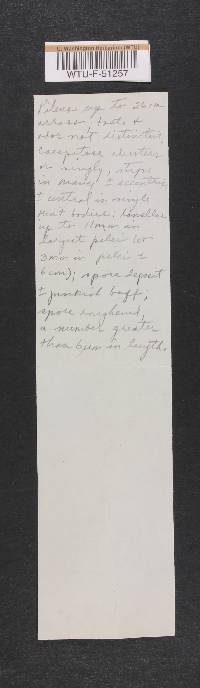 U. Washington Herbarium (WTU)
WTU-F-51257
Pileus up to 26 cm
across. Taste &
odor not distinctive.
Caespitose clusters
or singly, stipe
in many ± eccentric
± central in single
fruit bodies. Lamellae
up to 11mm in
largest pilei (or
3mm in pilei ±
6 cm); spore deposit
± pinkish buff;
spore roughened,
a number greater
than 6µm in length.